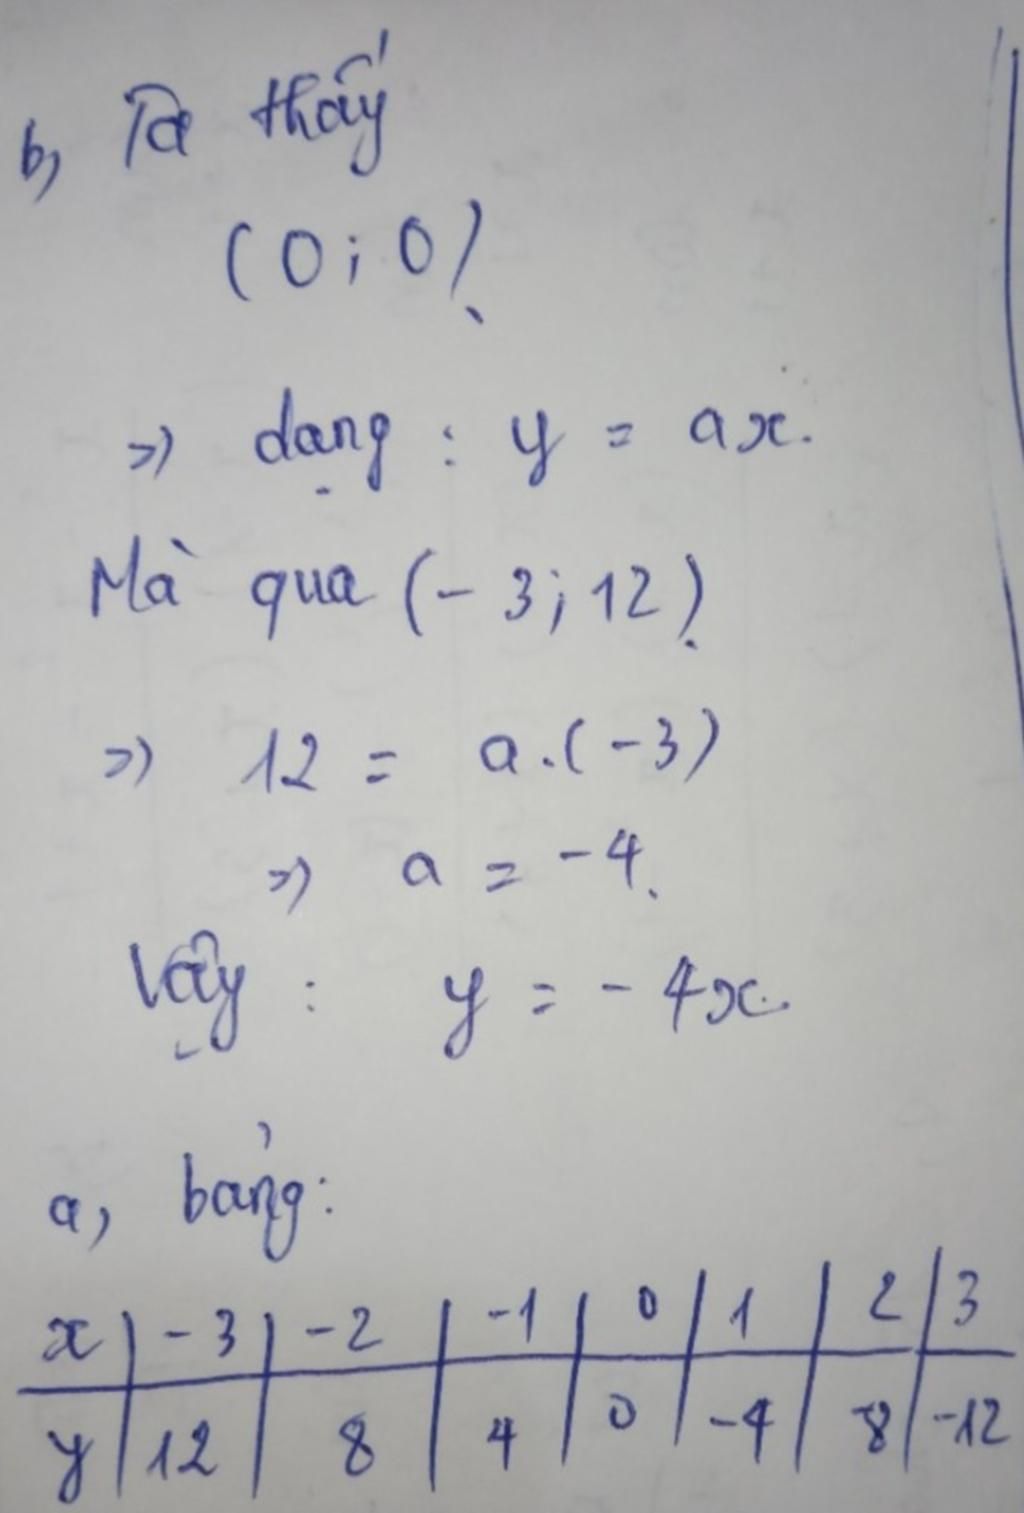 b, Ta thấy
(0; 0).
=> dạng : y = ax.
Mà qua (-3; 12).
=> 12 = a.(-3)
=> a = -4.
Vậy : y = -4x.
a, bảng:
x | -3 | -2 | -1 | 0 | 1 | 2 | 3
y | 12 | 8 | 4 | 0 | -4 | -8 | -12